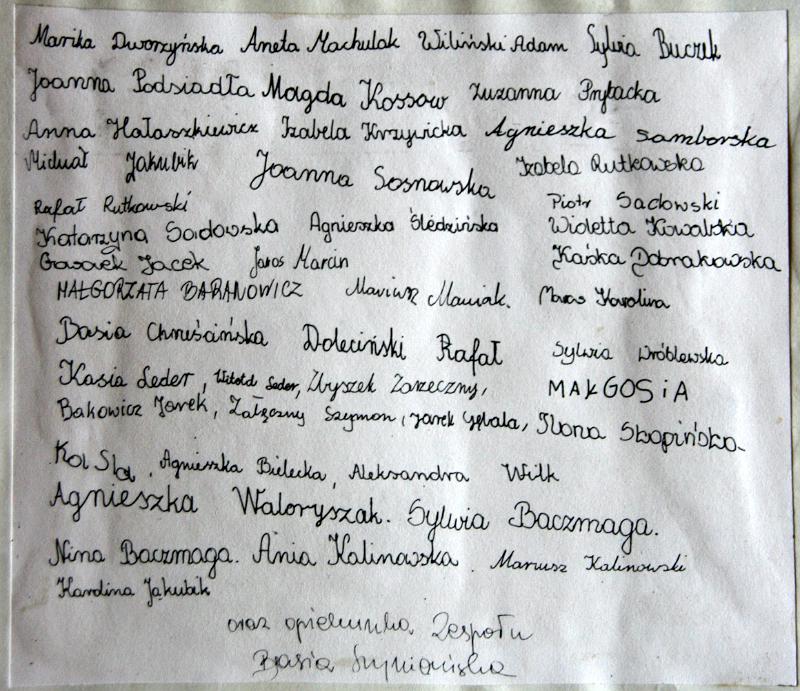 Marika Dworzyńska Aneta Machulak Wiliński Adam Sylwia Buczek
Joanna Podsiadła Magda Kossow Zuzanna Prybacka
Anna Hałaszkiewicz Izabela Krzywicka Agnieszka Samborska
Michał Jakubik Joanna Sosnowska Izabela Rutkowska
Rafał Rutkowski Piotr Sadowski
Katarzyna Sadowska Agnieszka Śledzińska Wioletta Kowalska
Gasarek Jacek Jaros Marcin Kaśka Dobrakowska
MAŁGORZATA BARANOWICZ Mariusz Maniak. Maras Karolina
Basia Chruścińska Doleciński Rafał Sylwia Wróblewska
Kasia Leder, Witold Leder, Zbyszek Zarzeczny, MAŁGOSiA
Bakowicz Jarek, Załączny Szymon, Jarek Gębala, Ilona Skopińska
, Agnieszka Bielecka, Aleksandra Wilk
Agnieszka Waloryszak. Sylwia Baczmaga.
Nina Baczmaga. Ania Kalinowska. Mariusz Kalinowski
Karolina Jakubik
oraz opiekunka Zespołu
Basia Szymańska